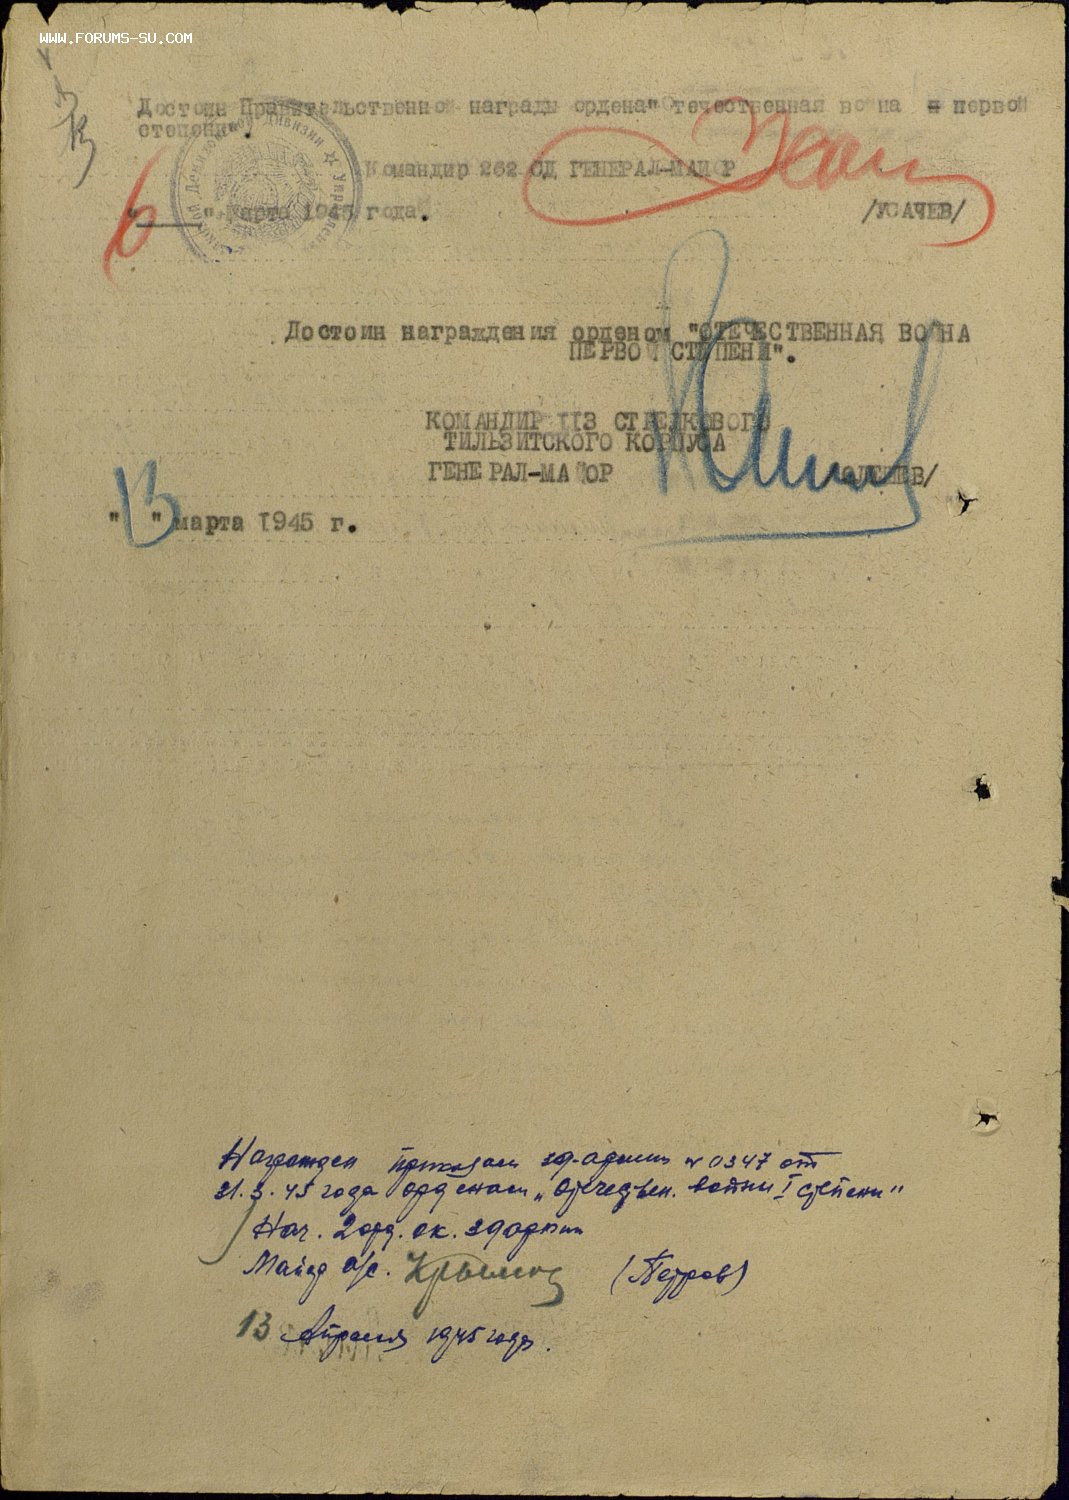 WWW.FORUMS-SU.COM
Достоин Правительственной награды ордена"Отечественная война первой
степени".
Командир 262 СД ГЕНЕРАЛ-МАЙОР
6 " марта 1945 года.
/УСАЧЕВ/
Достоин награждения орденом "ОТЕЧЕСТВЕННАЯ ВОЙНА
ПЕРВОЙ СТЕПЕНИ".
КОМАНДИР 113 СТРЕЛКОВОГО
ТИЛЬЗИТСКОГО КОРПУСА
ГЕНЕРАЛ-МАЙОР
"13" марта 1945 г.
Награжден приказом 39-армии № 0347 от
31.3.45 года орденом „Отечествен. войны I степени"
Нач. 2 отд. ок. 39 армии
Майор а/с. (Петров)
13 Апреля 1945 года.